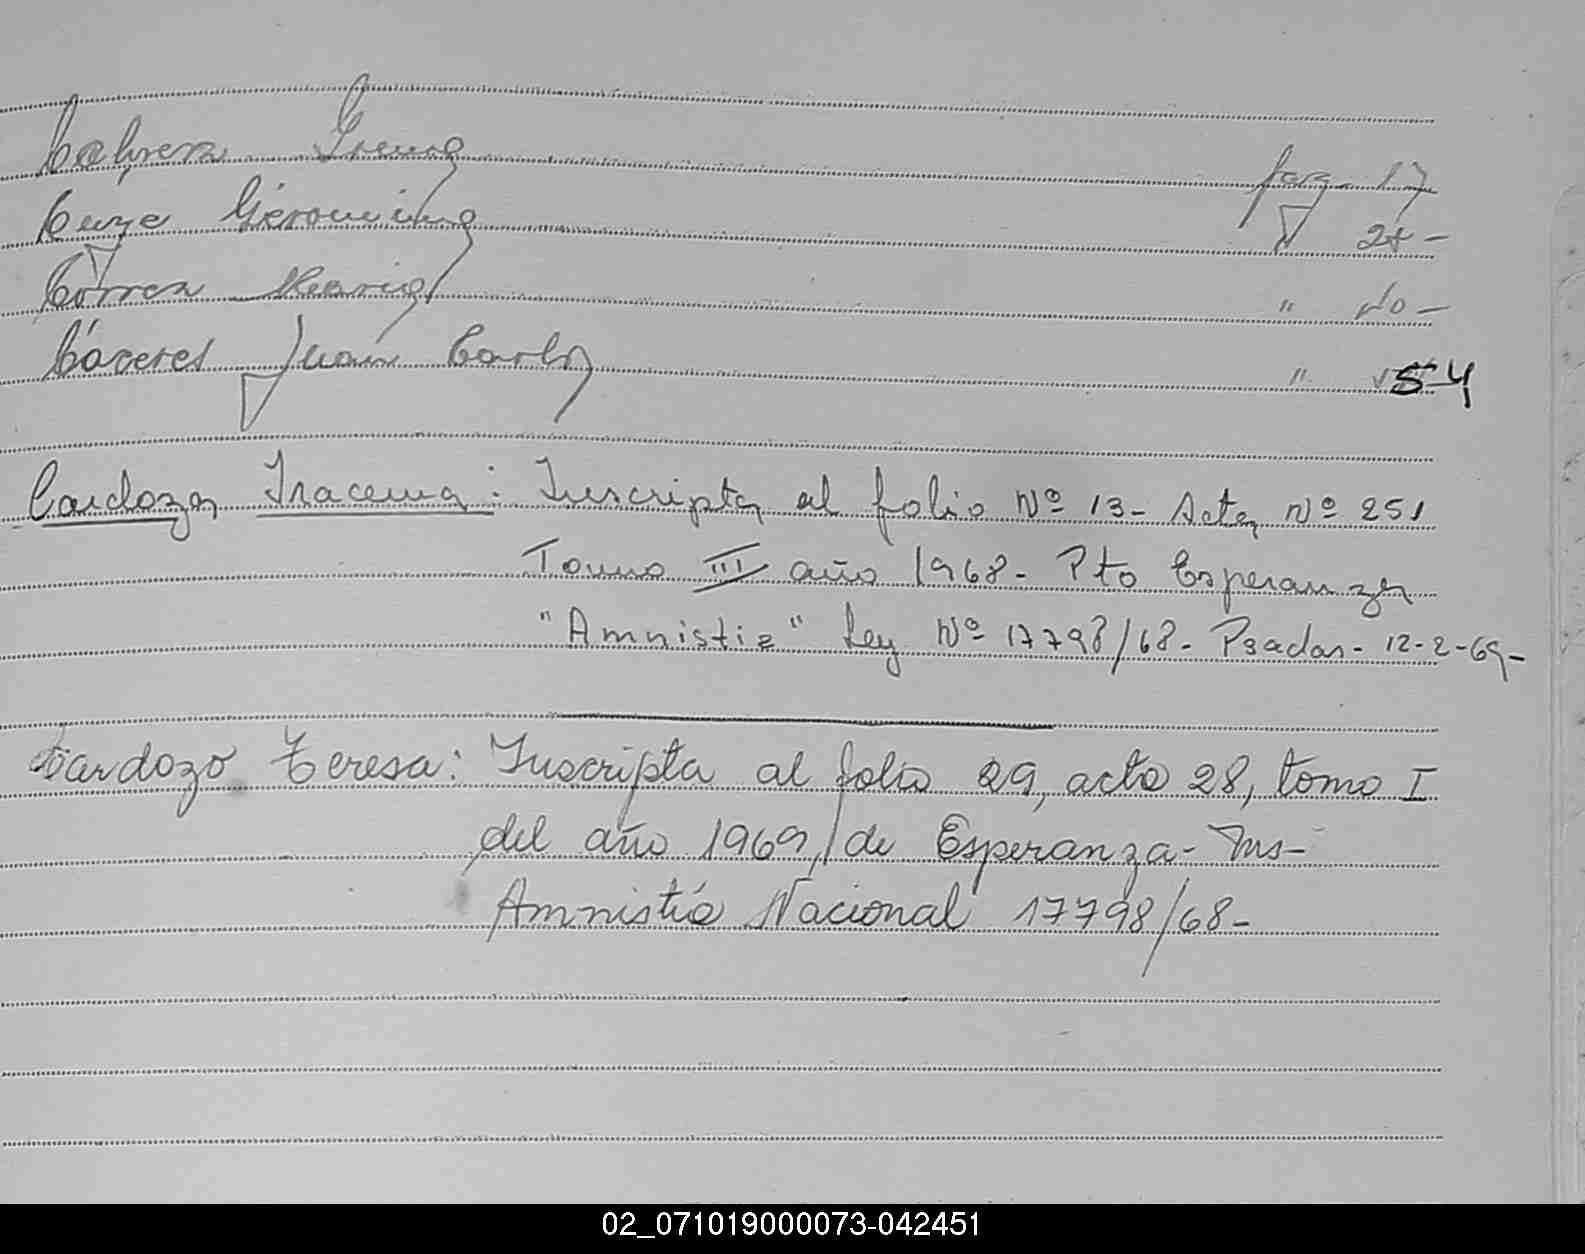 Cabrera Irema pag. 17
Cuze Geronima " 24 -
Correa Maria " 40 -
Cáceres Juan Carlos " 54
Cardozo, Iracema: Inscripta al folio Nº 13- Acta Nº 251
Tomo III año 1968- Pto Esperanza
"Amnistia" Ley Nº 17798/68- Psadas- 12-2-69-
Cardozo Teresa: Inscripta al folio 29, acta 28, tomo I
del año 1969, de Esperanza- Ms-
Amnistía Nacional 17798/68-
02_071019000073-042451